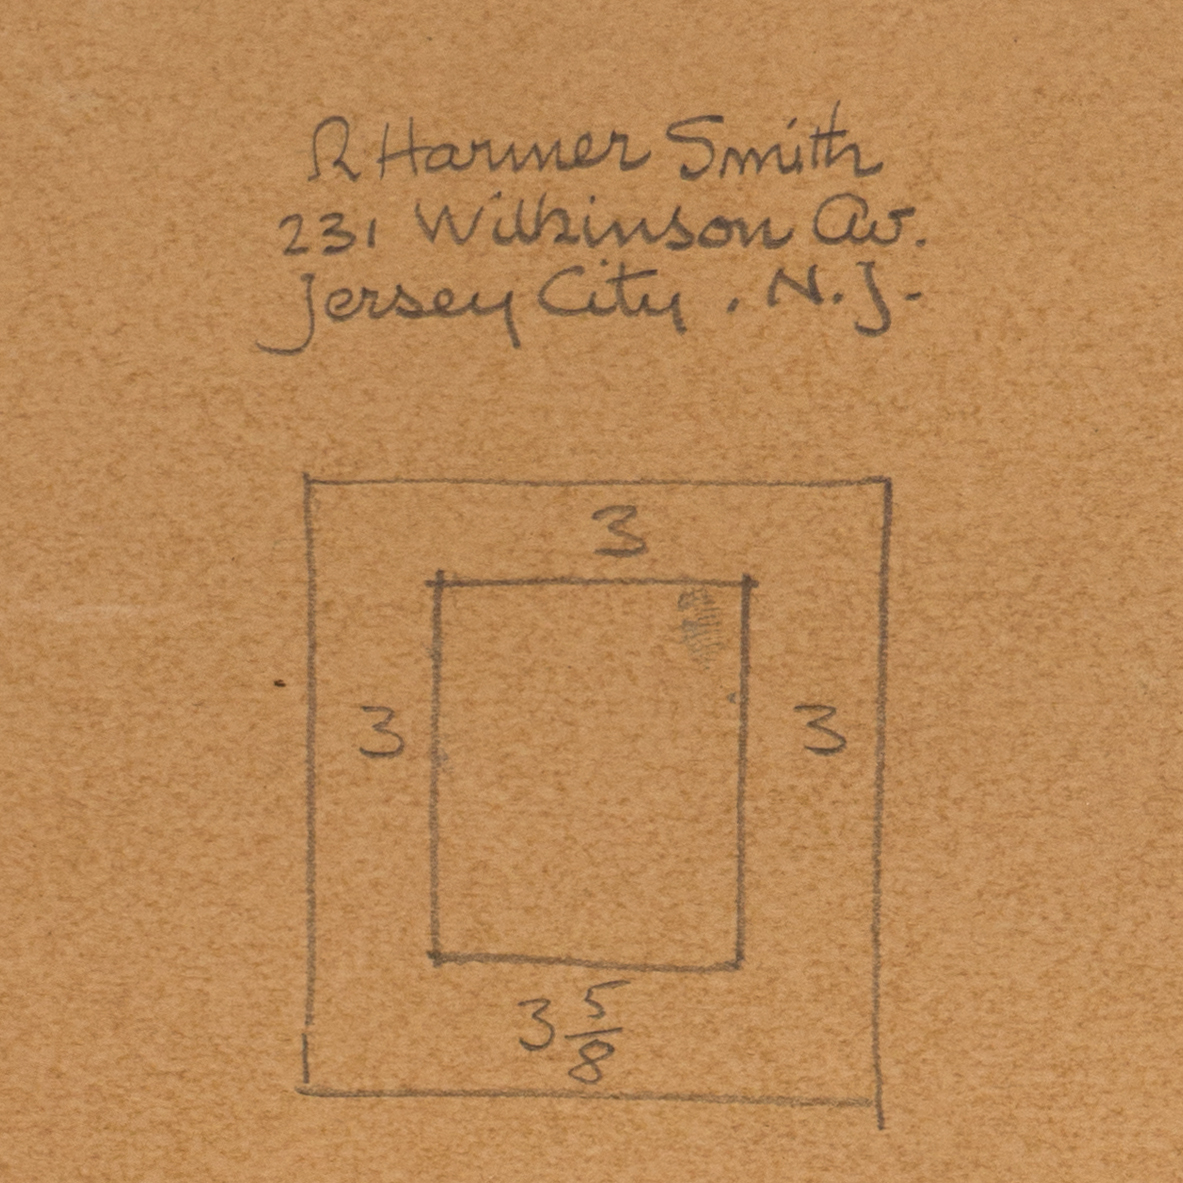 R Harmer Smith
231 Wilkinson Av.
Jersey City. N.J.
3
3 3
3 5/8